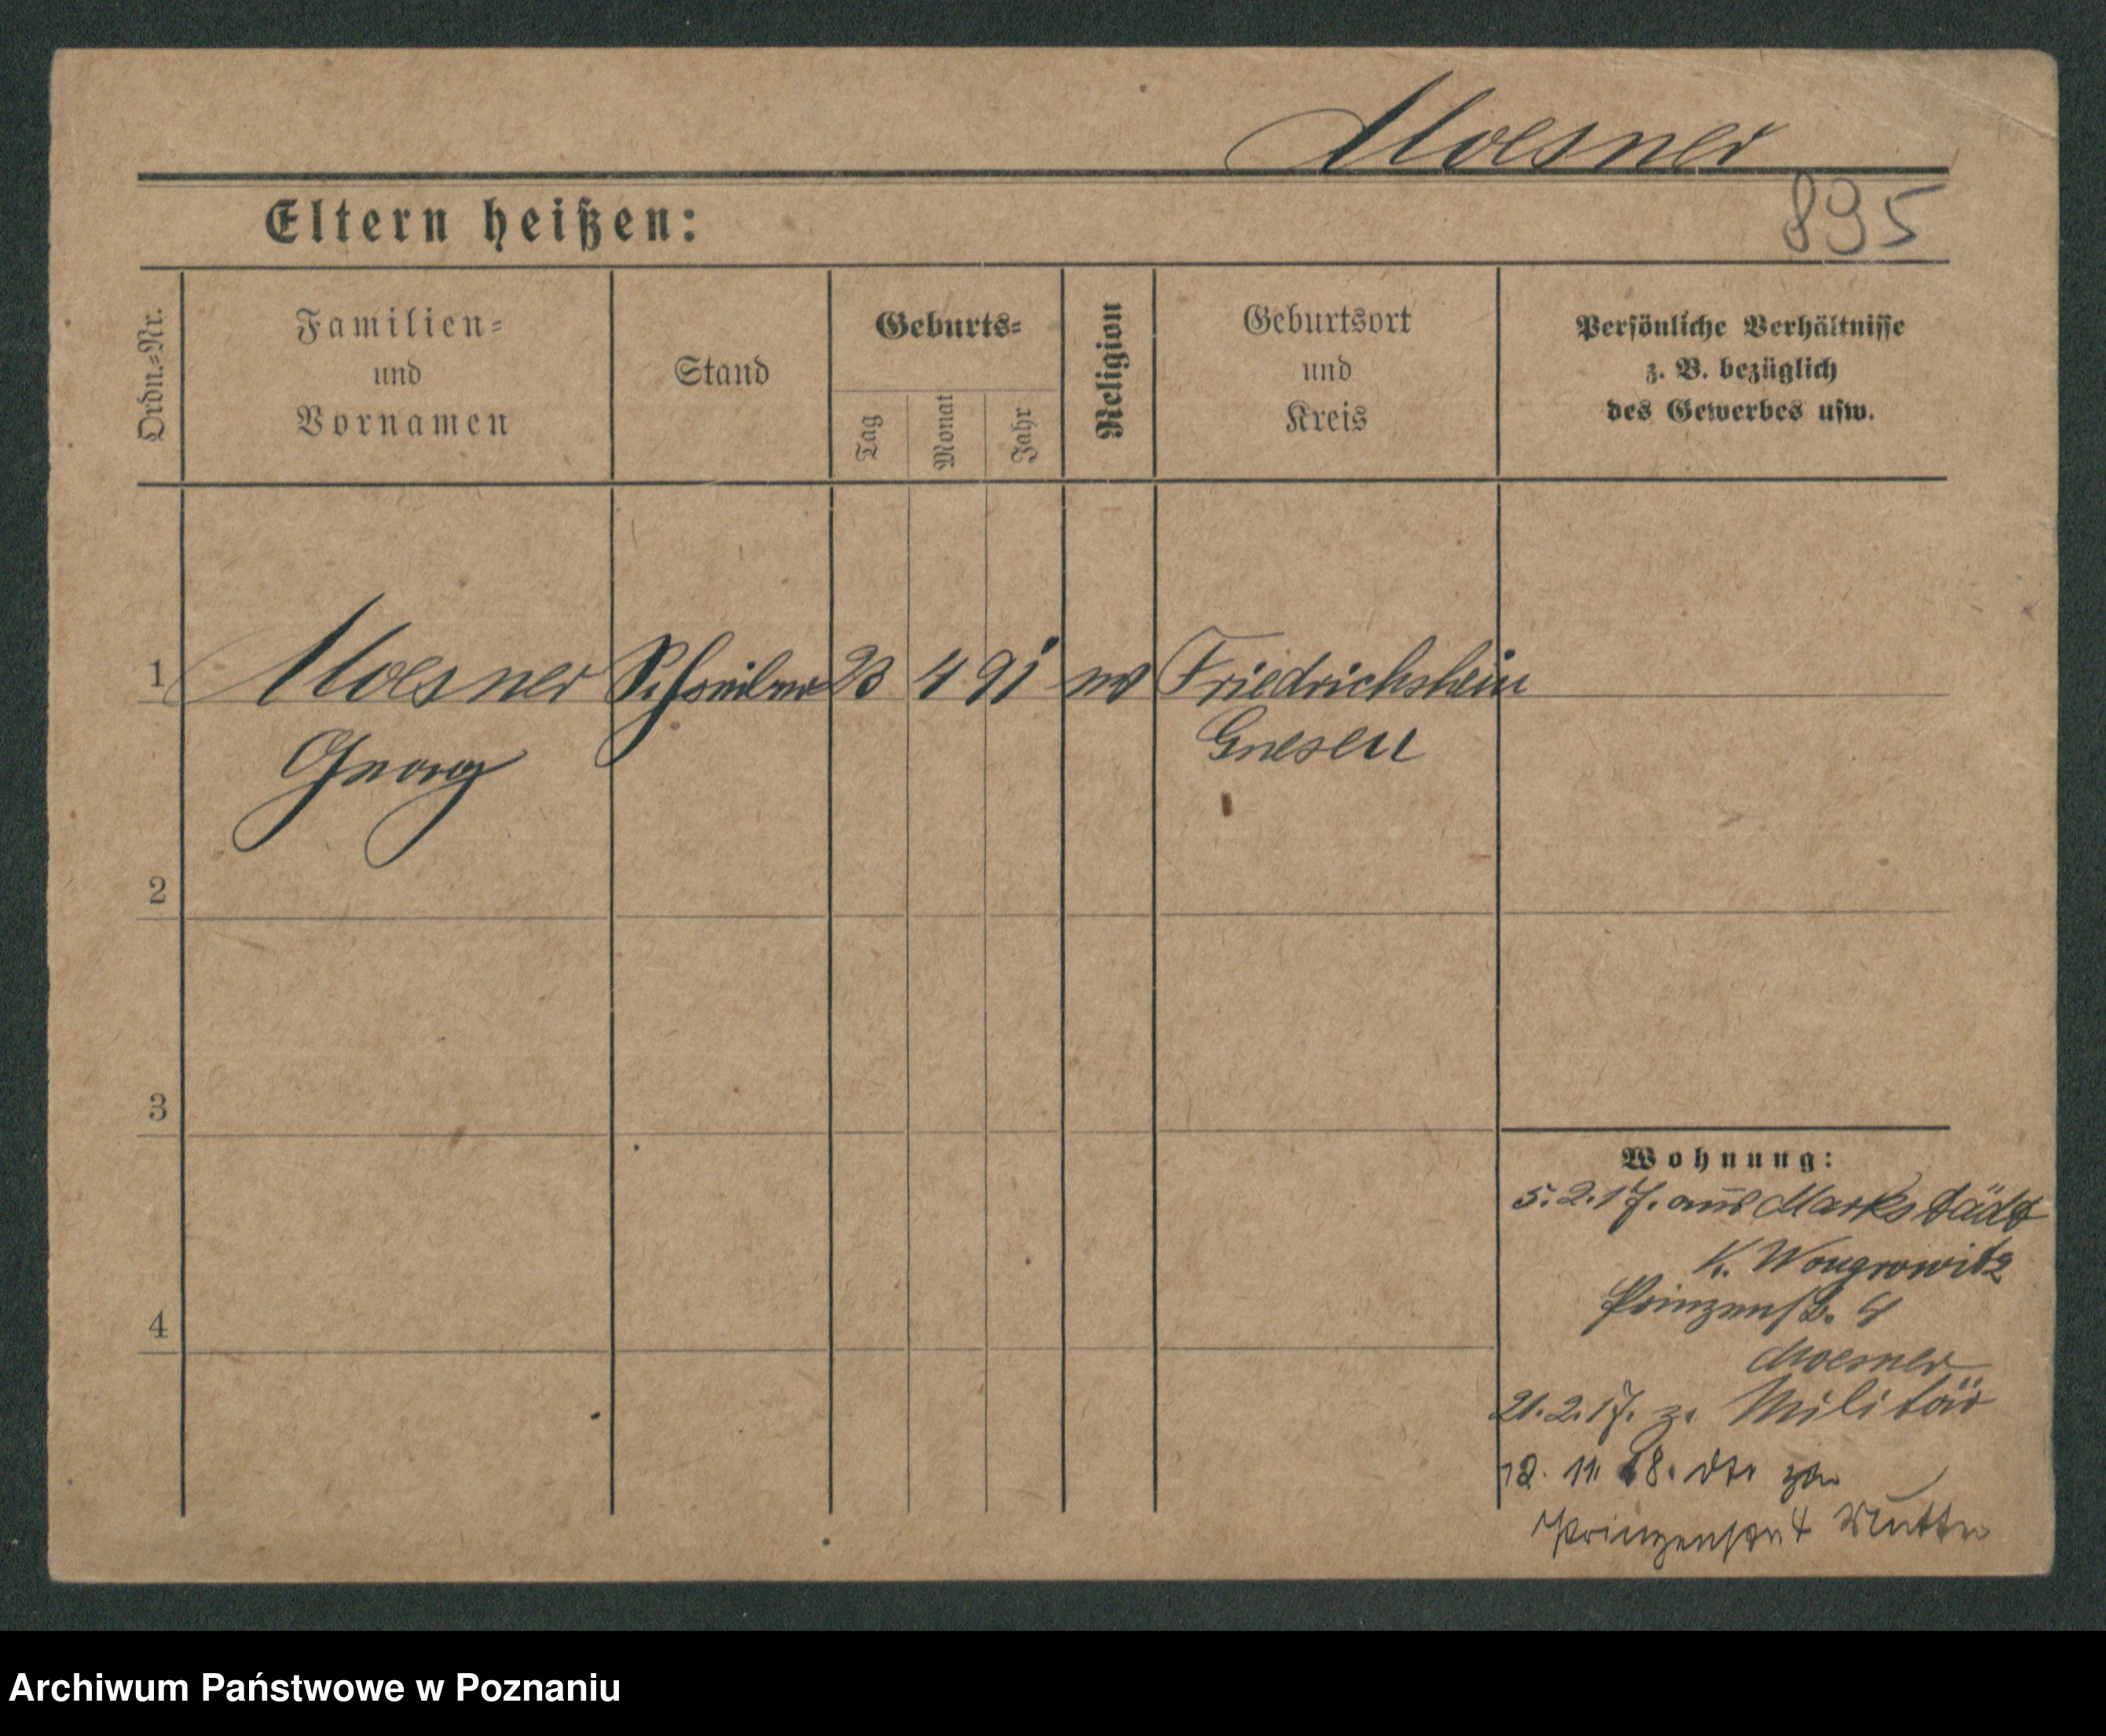 Moesner
895
Eltern heißen:
Ordn.-Nr.
Familien-
und
Vornamen
Stand
Geburts-
Tag
Monat
Jahr
Religion
Geburtsort
und
Kreis
Persönliche Verhältnisse
z. B. bezüglich
des Gewerbes usw.
1 Moesner Schreiber 23 4 91 Friedrichshein
Georg Gnesen
2
3
4
Wohnung:
5.2.17. aus Markstädt
K. Wongrowitz
Prinzenstr. 4
Moesner
21.2.17. z. Militär
12. 11. 18.
Prinzenstr. 4 Mutter
Archiwum Państwowe w Poznaniu